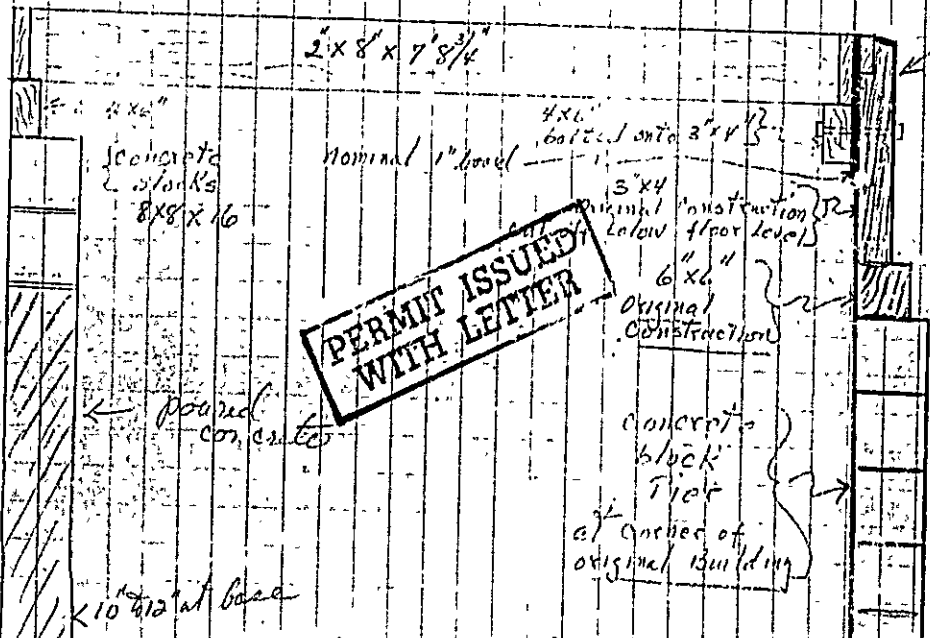 2" x 8" x 7' 8 3/4"
4x6"
concrete
blocks
8x8x16
nominal 1" board
4x6"
bolted onto 3"x4"
3"x4
original construction
below floor level
6"x6"
original
construction
PERMIT ISSUED
WITH LETTER
poured
concrete
concrete
block
at corner of
original building
10" to 12" at base